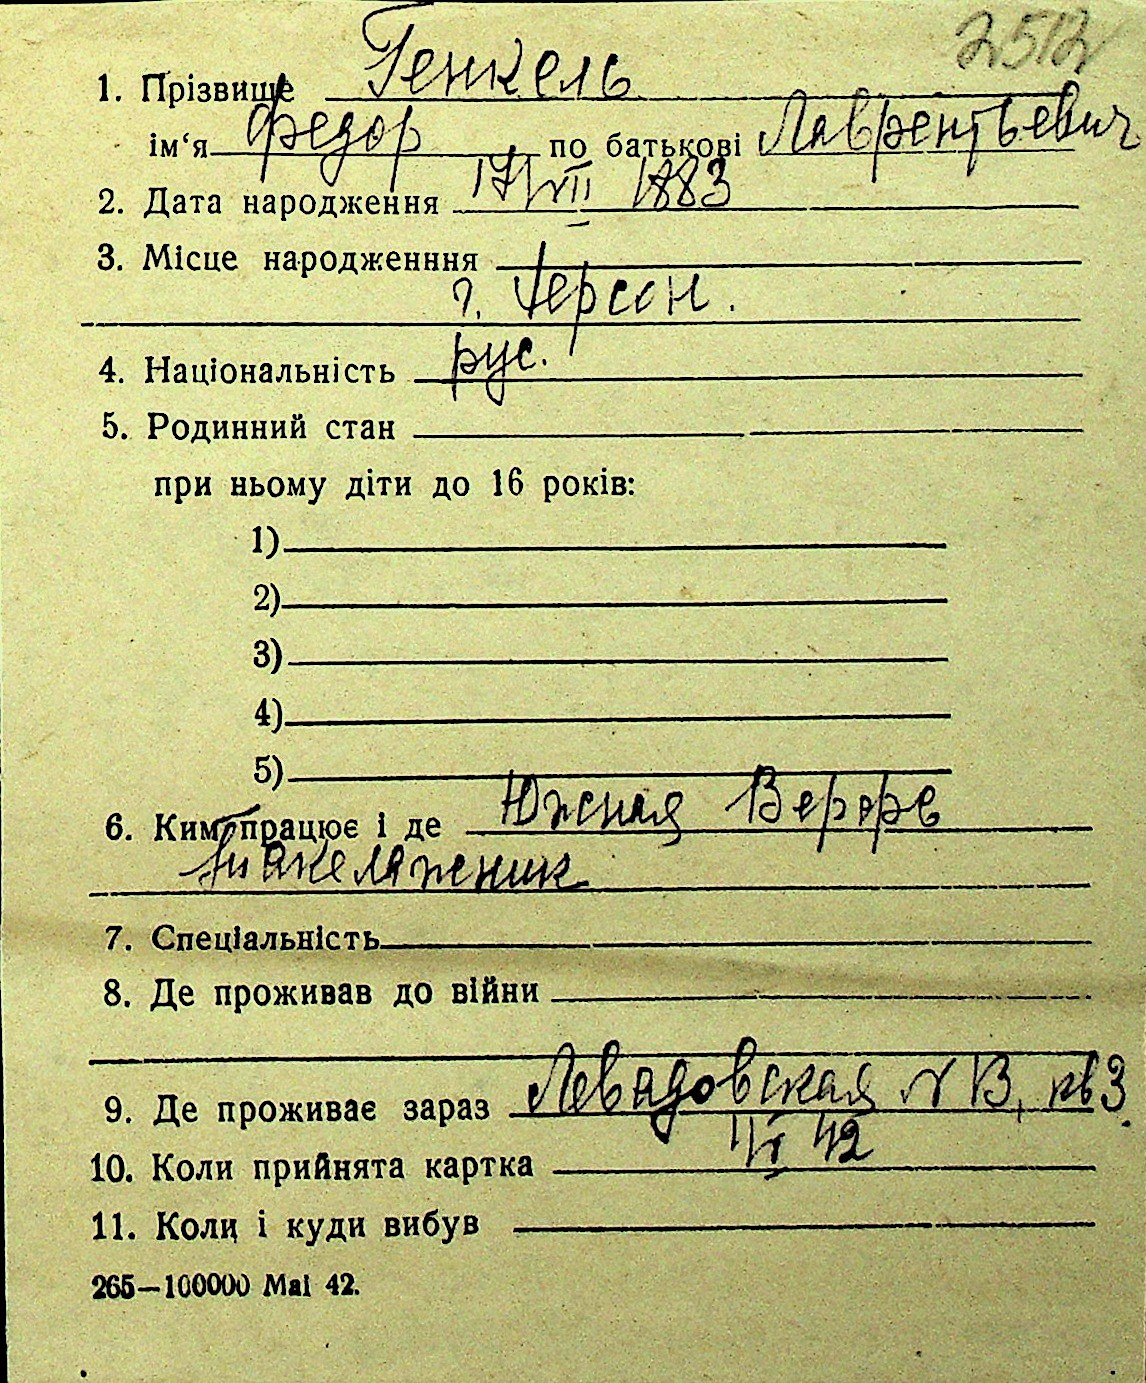 2512
1. Прізвище Генкель
ім‘я Федор по батькові Лаврентьевич
2. Дата народження 17/VII 1883
3. Місце народженння
г. Херсон.
4. Національність рус.
5. Родинний стан
при ньому діти до 16 років:
1)
2)
3)
4)
5)
6. Ким працює і де Южная Верфь
такелажник
7. Спеціальність
8. Де проживав до війни
9. Де проживає зараз Левадовская N 13, кв 3.
10. Коли прийнята картка 42
11. Коли і куди вибув
265—100000 Маі 42.